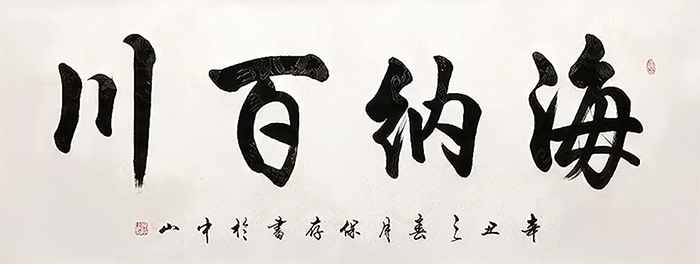 海纳百川
辛丑之春月保存書於中山